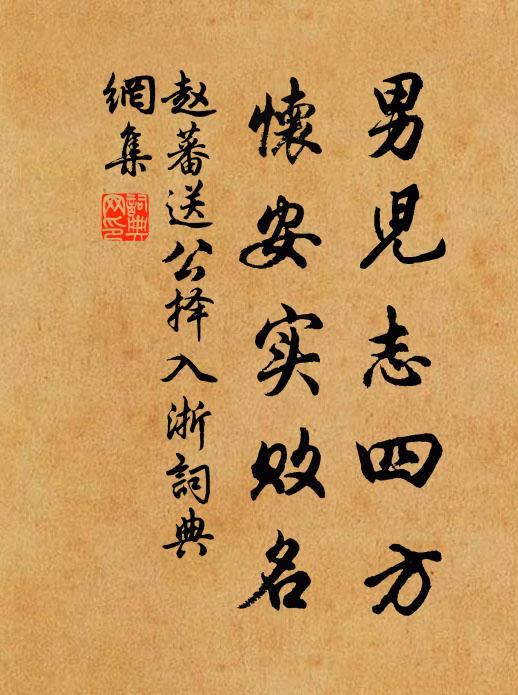 男児志四方
懷安实败名
赵蕃送公择入浙詞典
網集
詞典
网印